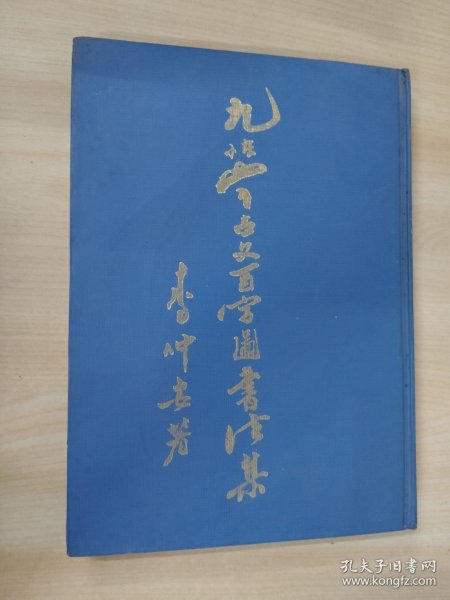 九
古文百字圖書法集
李仲安著
孔夫子旧书网
www.kongfz.com